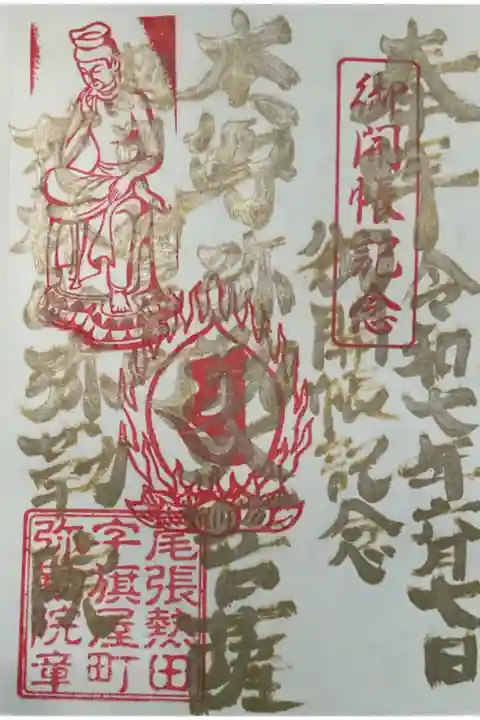 奉拝 令和七年六月七日
御開帳記念
御開帳記念
弥勒菩薩
弥勒院
尾張熱田
字旗屋町
弥勒院章